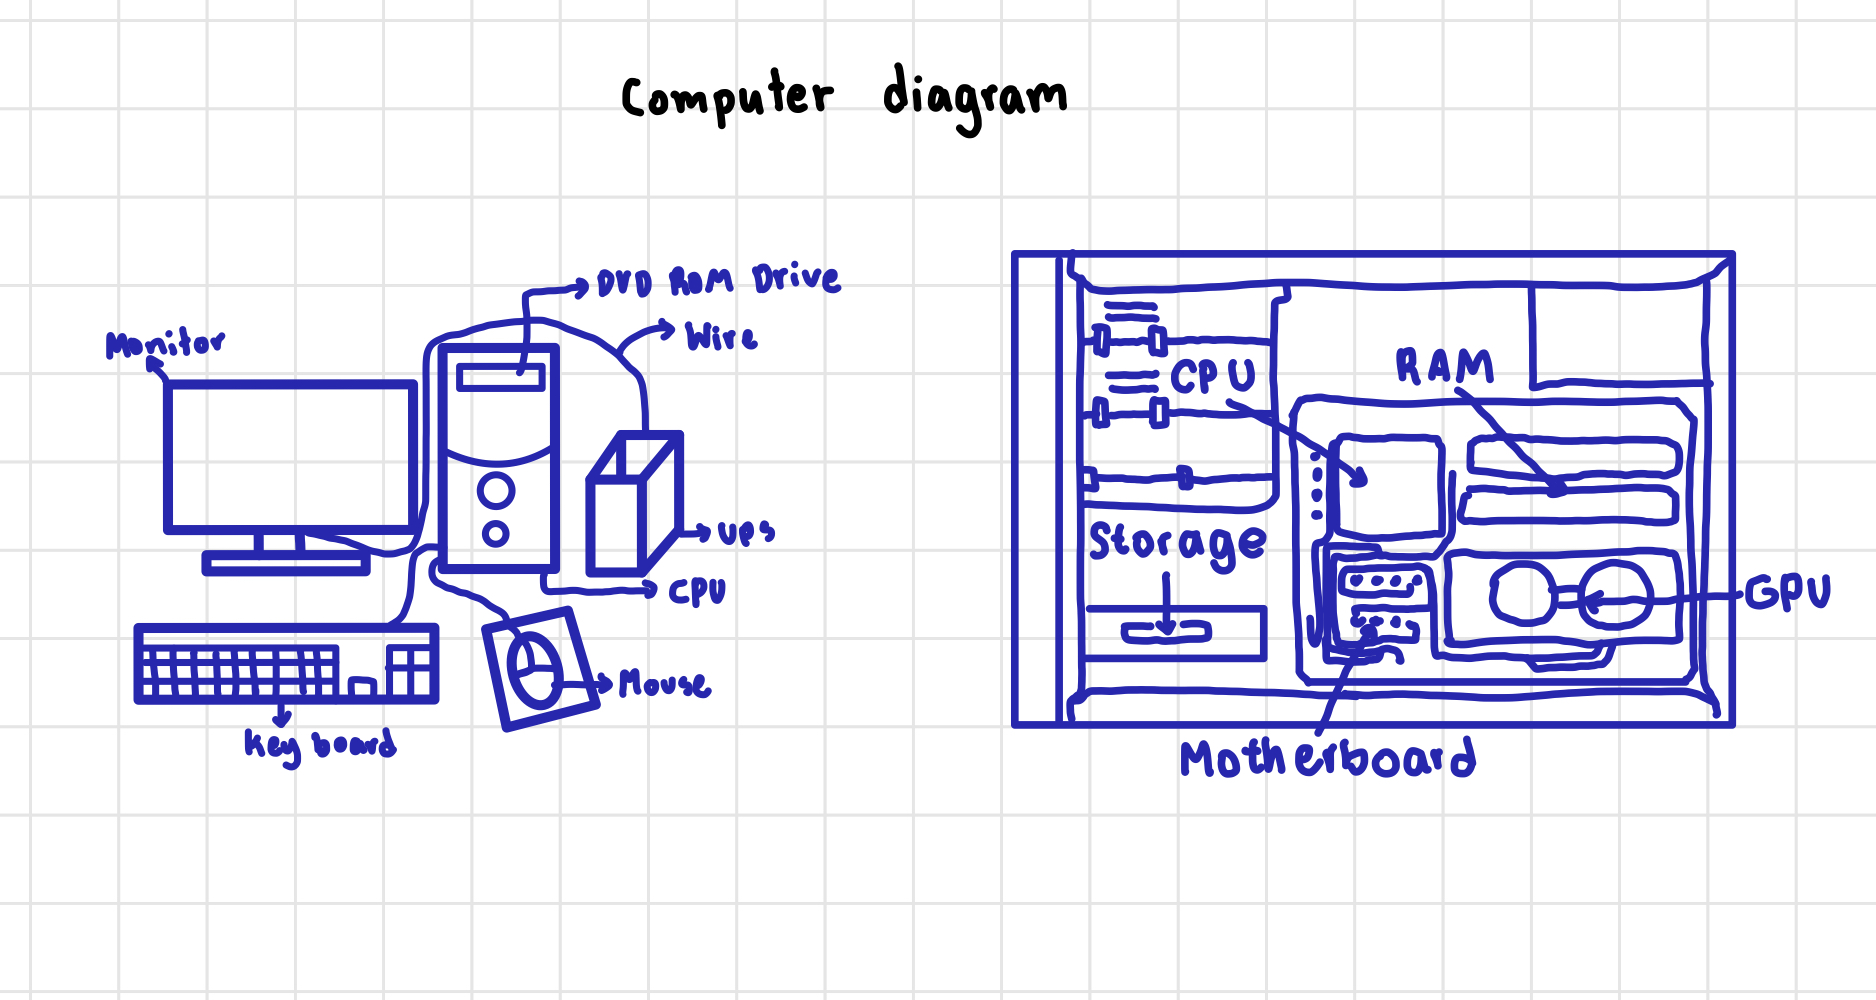 Computer diagram
DVD ROM Drive
Wire
Monitor
UPS
CPU
Mouse
Key board
CPU
RAM
Storage
GPU
Motherboard